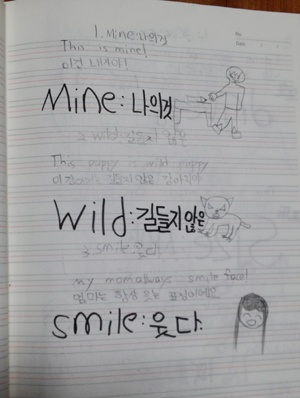 1. Mine: 나의것
This is mine!
이건 내거야!
Mine: 나의것
2 wild 길들지않은
This puppy is wild puppy
이 길들지 않은 강아지야
Wild: 길들지않은
3 smile 웃다.
my mom always smile face!
엄마는 항상 웃는 표정이에요
smile: 웃다.